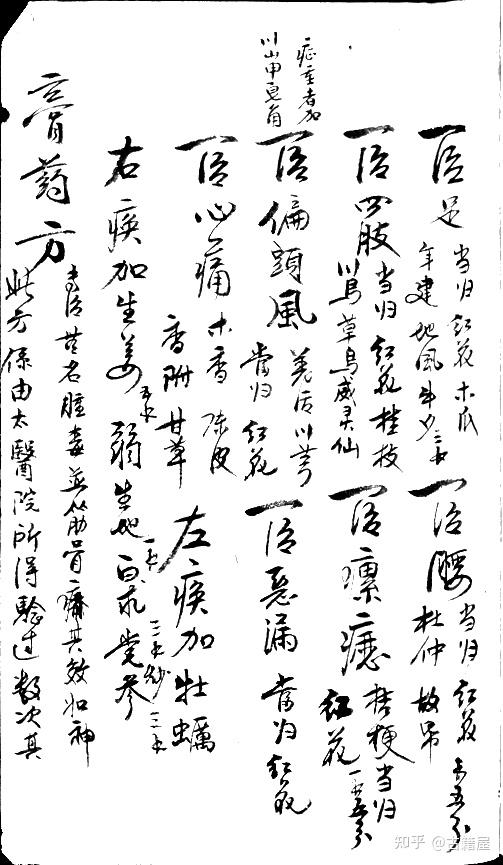 一治足 当归 红花 木瓜
年建 地风 牛夕 三钱
一治腰 当归 红花
杜仲 故帋 各五分
一治四肢 当归 红花 桂枝
川乌 草乌 威灵仙
一治瘰疬 桔梗 当归
红花 一钱五分
症重者加
川山甲 皂角
一治偏頭風 羌活 川芎
当归 红花
一治恶漏 当归 红花
一治心痛 木香 陈皮
香附 甘草
左痪加牡蠣
右痪加生姜 弱生地 白术 党参
膏药方
專治芒名腫毒並筋骨痛其效如神
此方係由太醫院所得驗过数次其
知乎 @古籍屋